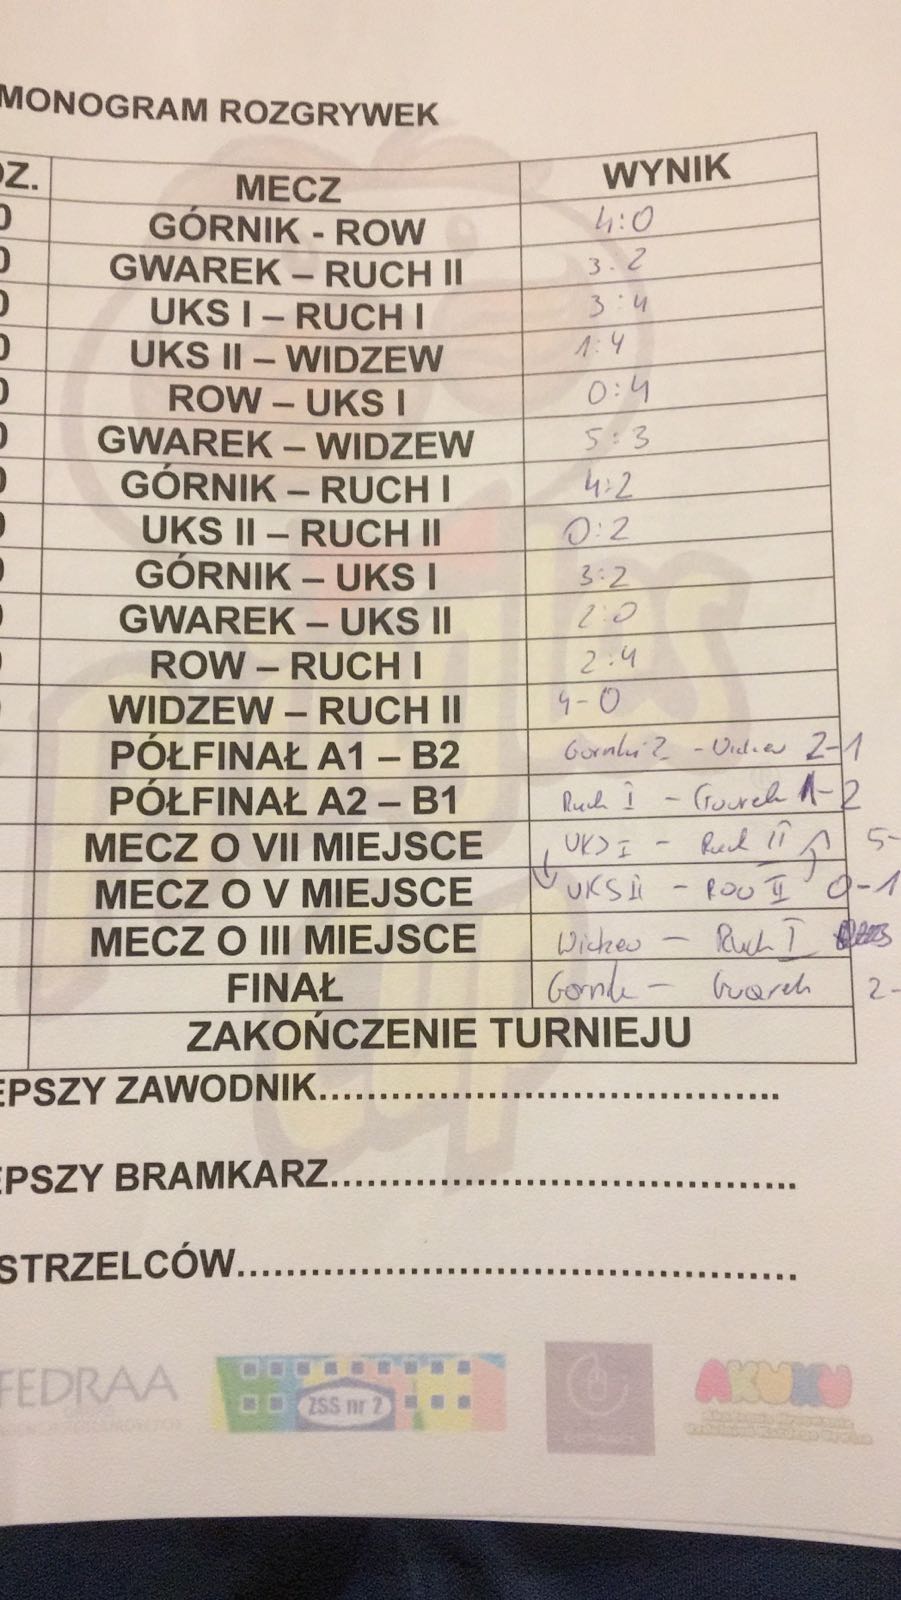 MONOGRAM ROZGRYWEK
DZ. MECZ WYNIK
0 GÓRNIK - ROW 4:0
0 GWAREK – RUCH II 3:2
0 UKS I – RUCH I 3:4
0 UKS II – WIDZEW 1:4
0 ROW – UKS I 0:4
0 GWAREK – WIDZEW 5:3
0 GÓRNIK – RUCH I 4:2
0 UKS II – RUCH II 0:2
0 GÓRNIK – UKS I 3:2
0 GWAREK – UKS II 2:0
ROW – RUCH I 2:4
WIDZEW – RUCH II 4-0
PÓŁFINAŁ A1 – B2 - Widzew 2-1
PÓŁFINAŁ A2 – B1 Ruch I - Gwarek 1-2
MECZ O VII MIEJSCE UKS I - Ruch II 5-
MECZ O V MIEJSCE UKS II - ROW II 0-1
MECZ O III MIEJSCE Widzew - Ruch I
FINAŁ Gornik - Gwarek 2-
ZAKOŃCZENIE TURNIEJU
EPSZY ZAWODNIK.....................................
EPSZY BRAMKARZ.....................................
STRZELCÓW.............................................
FEDRAA
ZSS nr 2
AKUKU